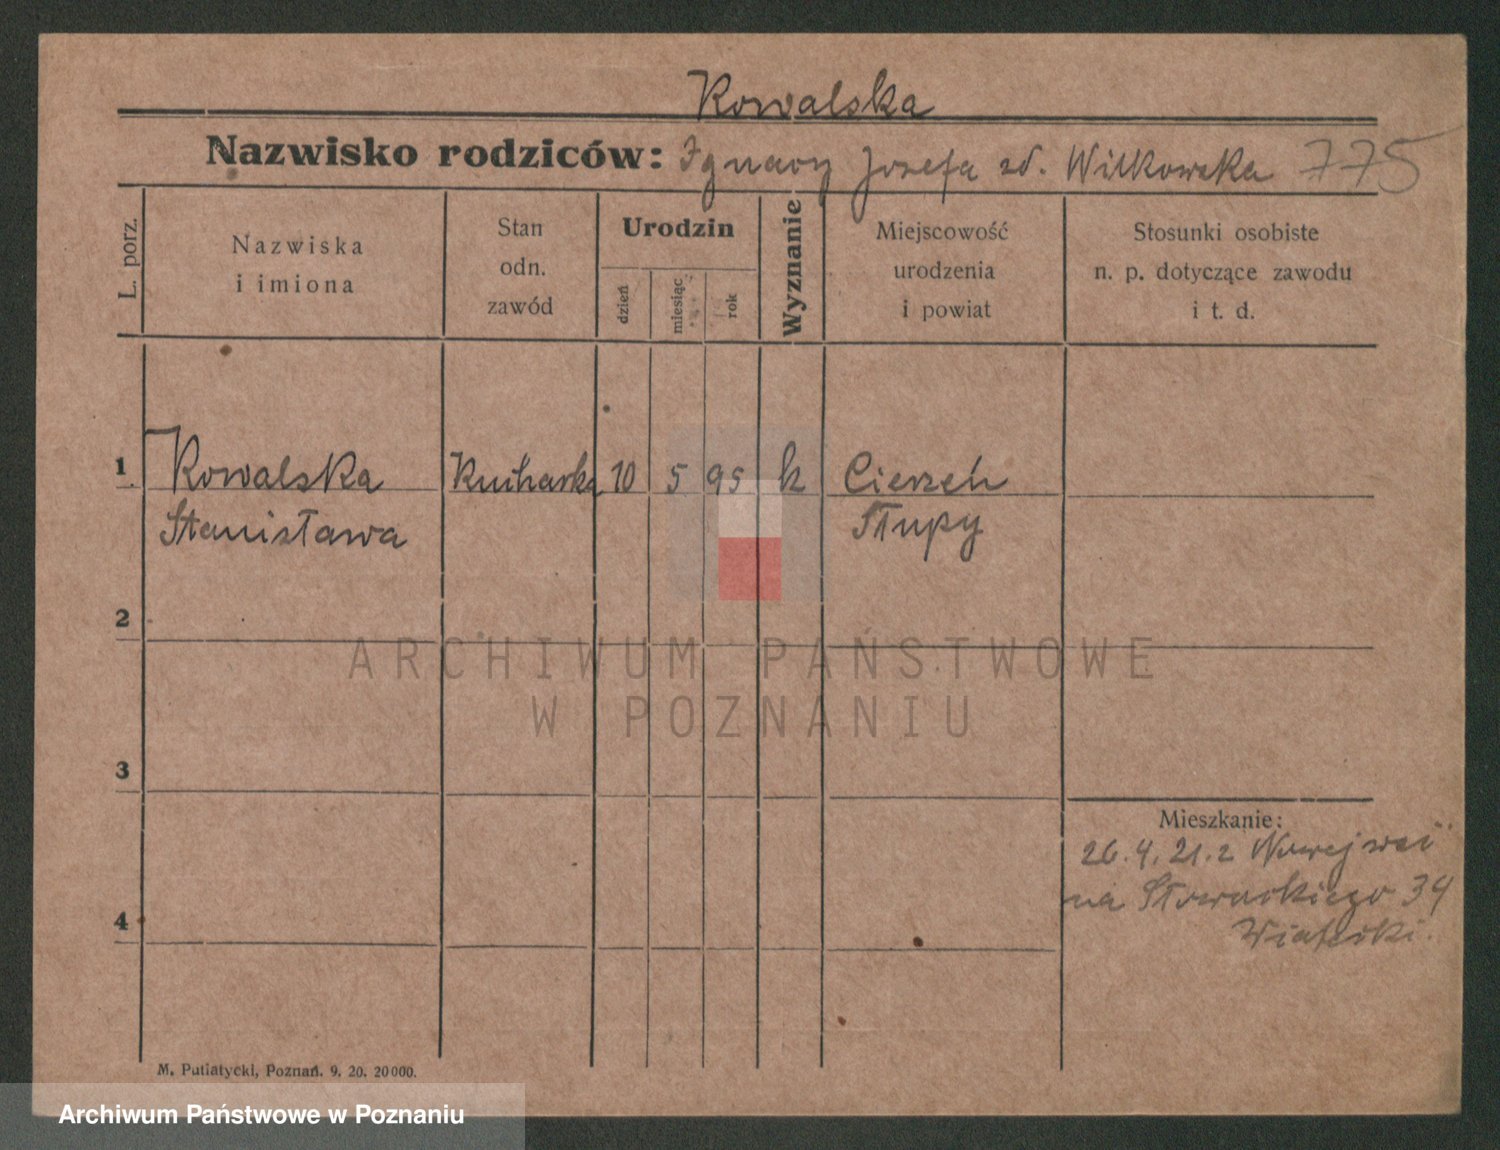 Kowalska
Nazwisko rodziców: Ignacy Józefa zd. Witkowska 775
L. porz.
Nazwiska
i imiona
Stan
odn.
zawód
Urodzin
dzień
miesiąc
rok
Wyznanie
Miejscowość
urodzenia
i powiat
Stosunki osobiste
n. p. dotyczące zawodu
i t. d.
1 Kowalska Kucharka 10 5 95 k
Stanisława Słupy
2
ARCHIWUM PAŃSTWOWE
W POZNANIU
3
Mieszkanie:
26.4.21. z Nowejwsi
na Słowackiego 34
4
M. Putiatycki, Poznań. 9. 20. 20000.
Archiwum Państwowe w Poznaniu